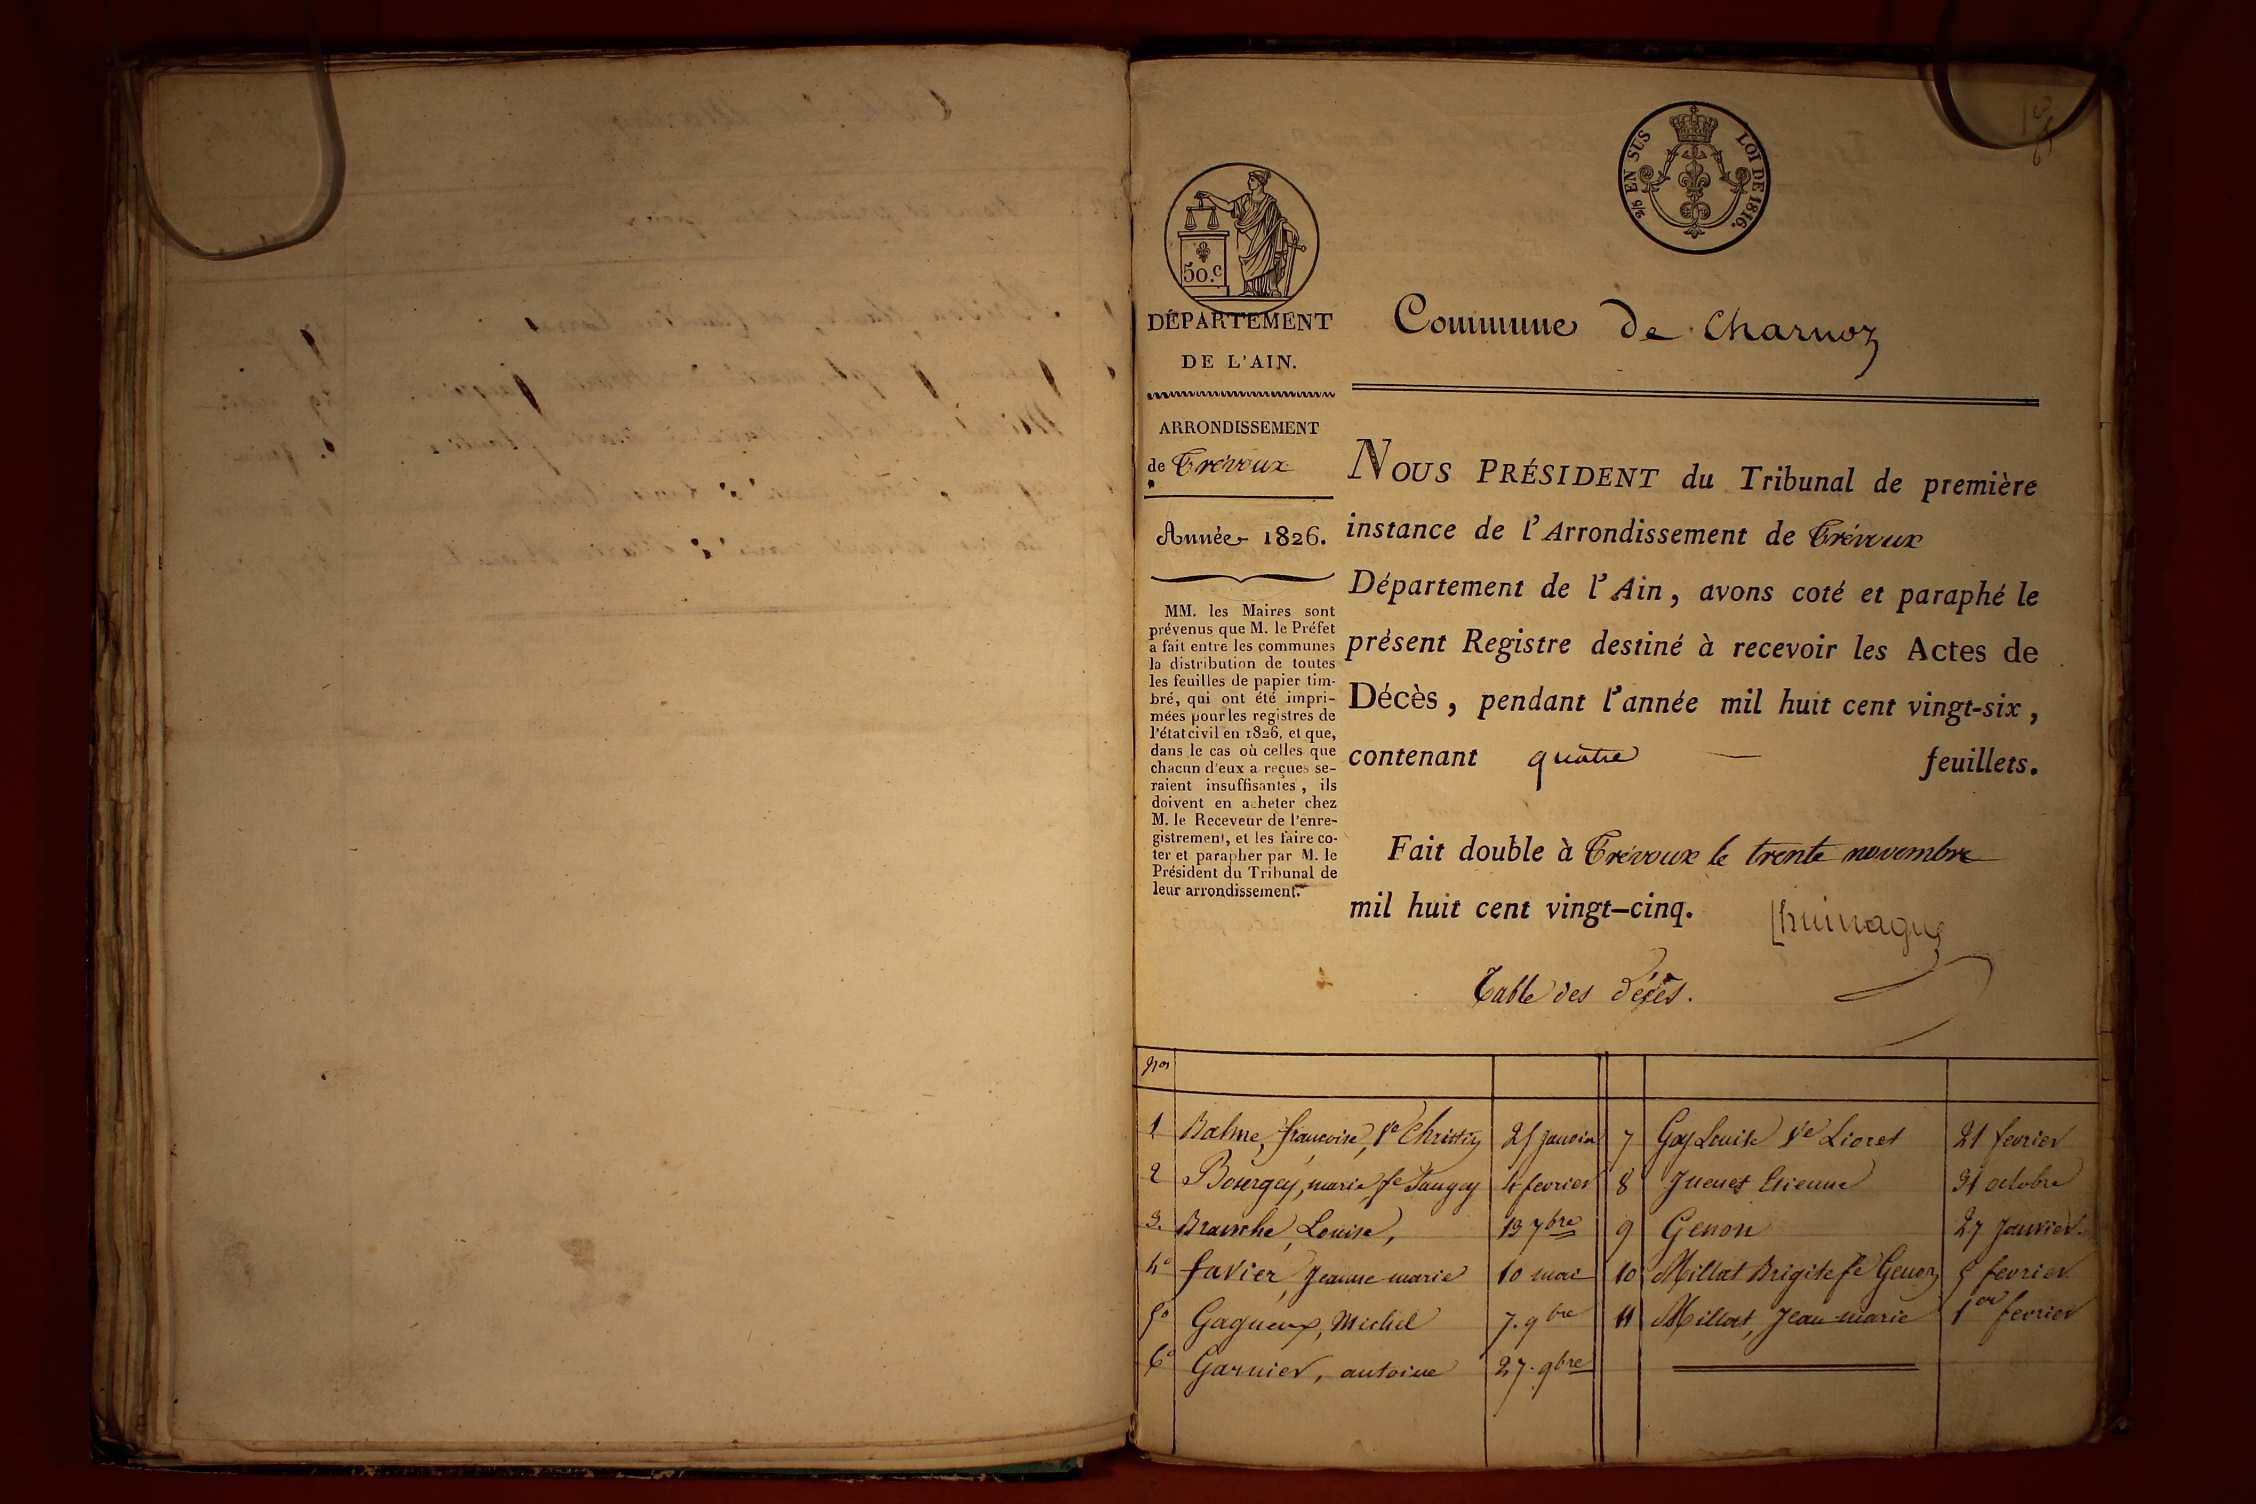 2/5 EN SUS LOI DE 1816.
50.c
DÉPARTEMENT
DE L'AIN.
ARRONDISSEMENT
de Trévoux
Année 1826.
MM. les Maires sont
prévenus que M. le Préfet
a fait entre les communes
la distribution de toutes
les feuilles de papier tim-
bré, qui ont été impri-
mées pour les registres de
l'état civil en 1826, et que,
dans le cas où celles que
chacun d'eux a reçues se-
raient insuffisantes, ils
doivent en acheter chez
M. le Receveur de l'enre-
gistrement, et les faire co-
ter et parapher par M. le
Président du Tribunal de
leur arrondissement.
Commune de Charnoz
NOUS PRÉSIDENT du Tribunal de première
instance de l'Arrondissement de Trévoux
Département de l'Ain, avons coté et paraphé le
présent Registre destiné à recevoir les Actes de
Décès, pendant l'année mil huit cent vingt-six,
contenant quatre — feuillets.
Fait double à Trévoux le trente novembre
mil huit cent vingt-cinq.
Table des Décès.
Nos
1 Balme, françoise, Ve Christin 25 janvier
2 Bourgey, marie fe 4 fevrier
3. Branche, Louise, 13 7bre
4o favier, Jeanne marie 10 mai
5o Gagneux, Michel 7. 9bre
6o Garnier, antoine 27. 9bre
7 Goy Louise Ve Lioret 21 fevrier
8 Etienne 31 octobre
9 Genon 27 Janvier.
10 Millat Brigite fe Genon 5 fevrier
11 Millat, Jean marie 1er fevrier